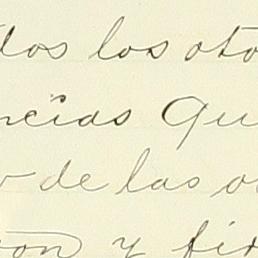 dos los oto
ncias qu
o de las o
on y fir